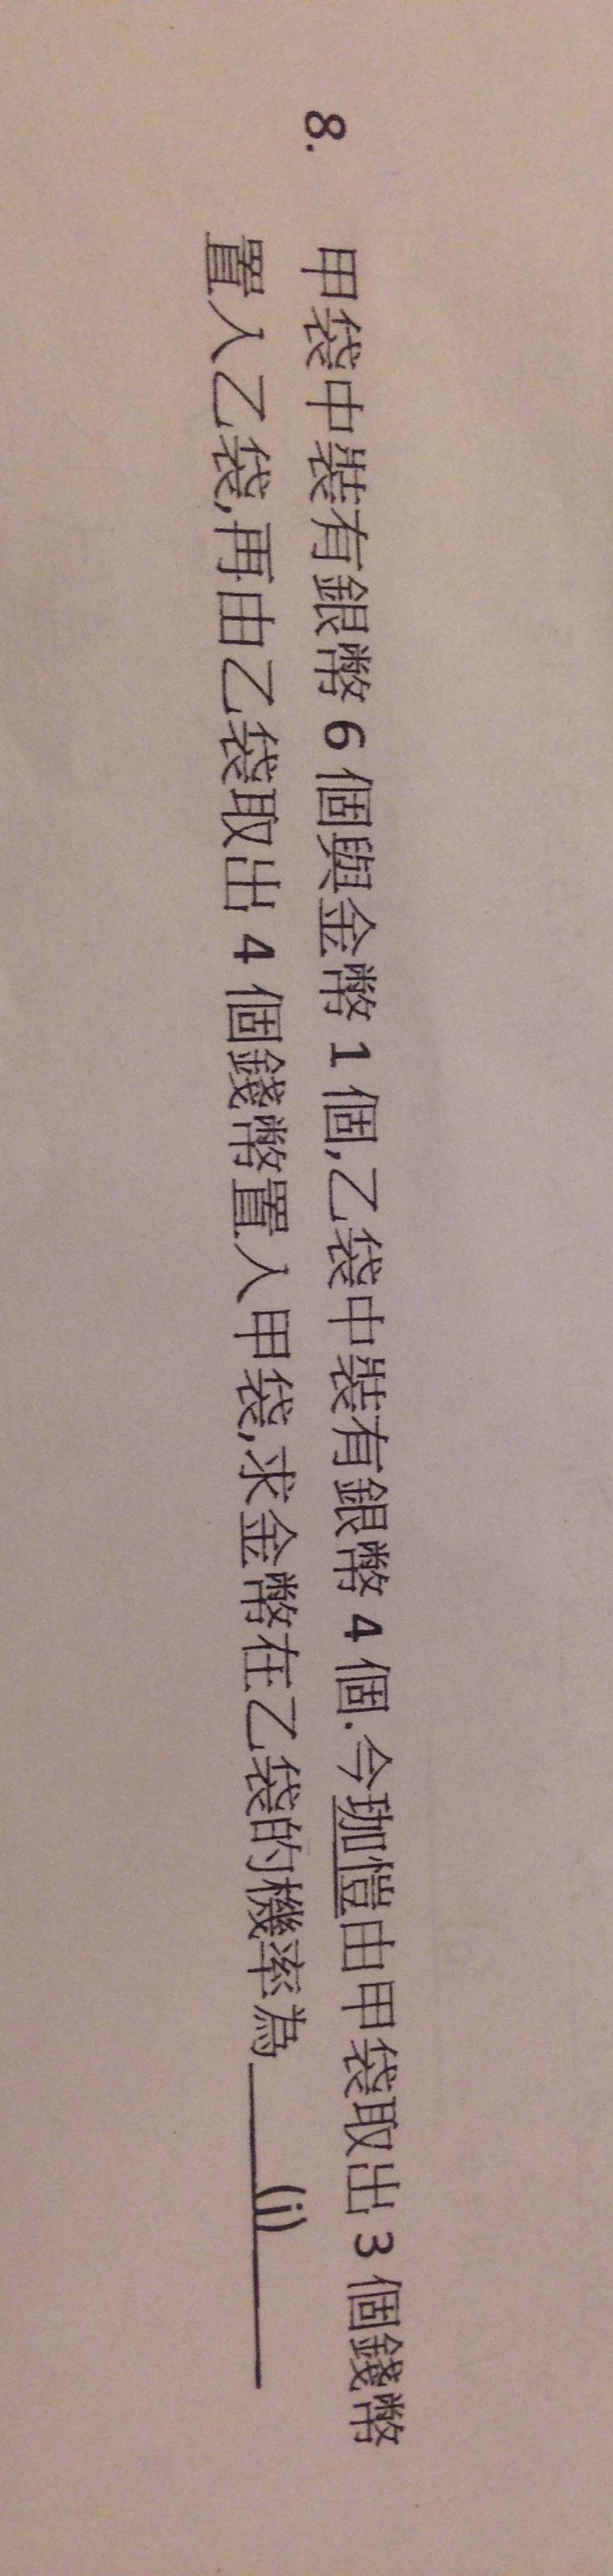 8. 甲袋中裝有銀幣 6 個與金幣 1 個,乙袋中裝有銀幣 4 個.今珈愷由甲袋取出 3 個錢幣
置入乙袋,再由乙袋取出 4 個錢幣置入甲袋,求金幣在乙袋的機率為 (j)